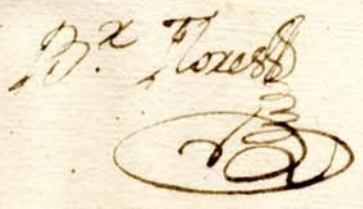 B.x Flores